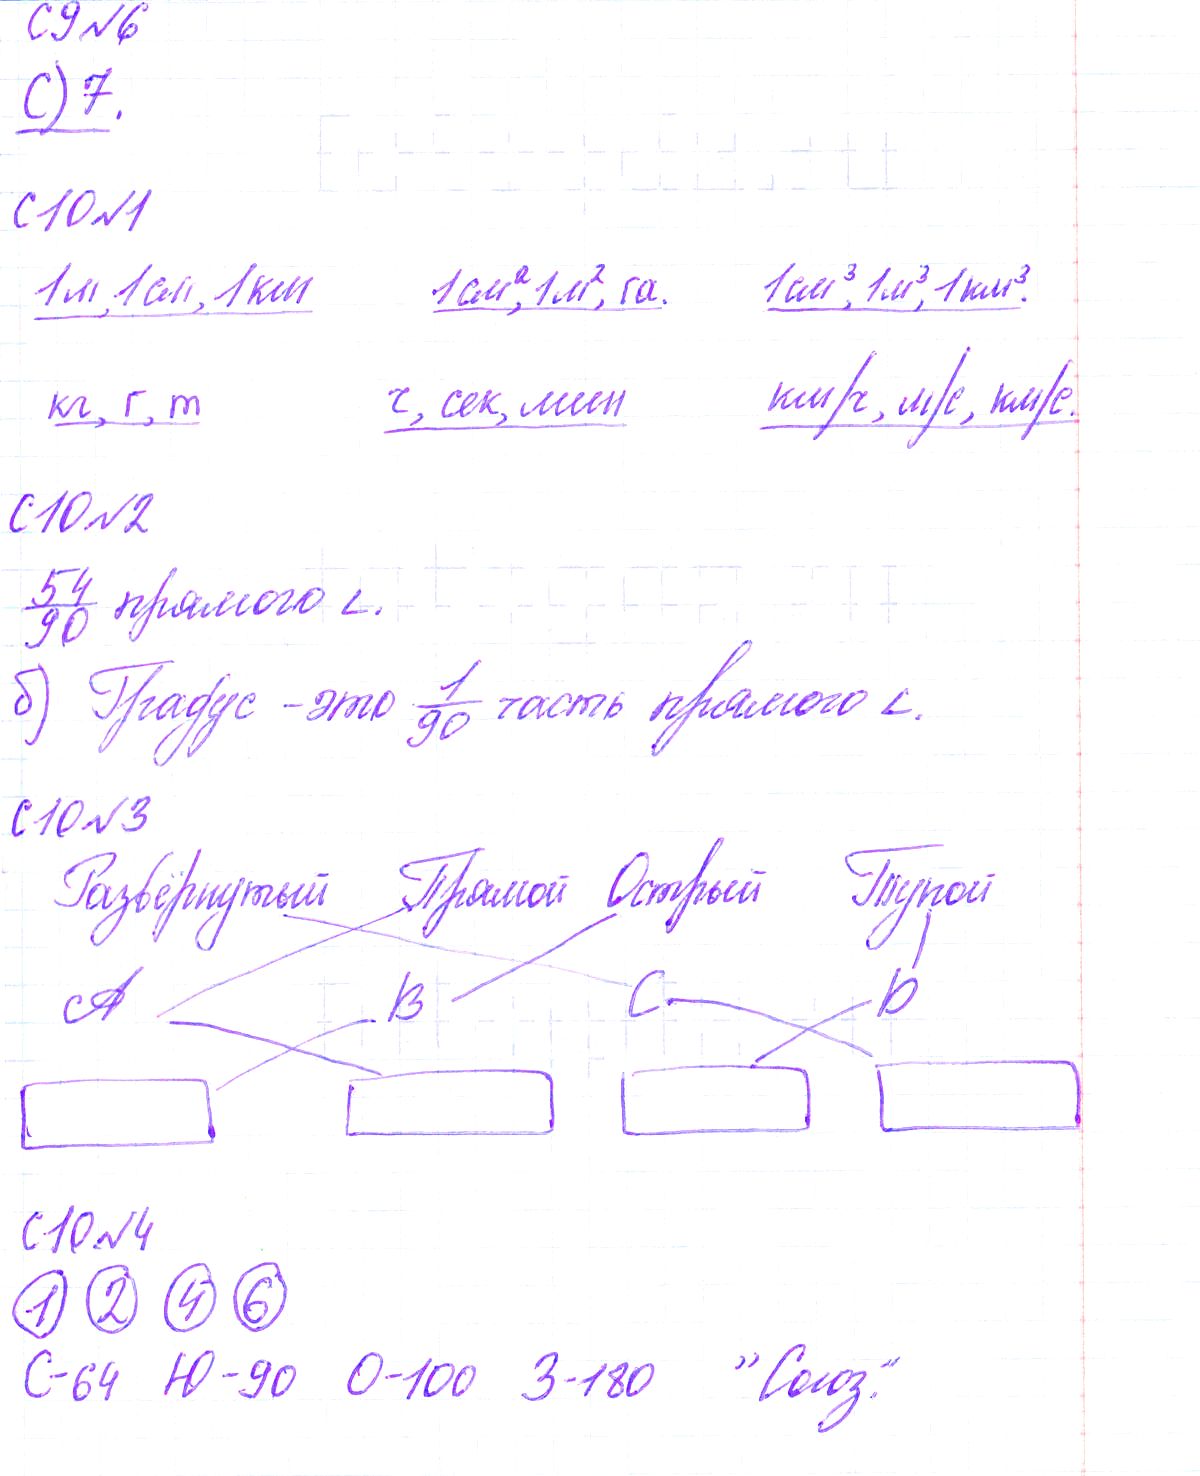 С9№6
С) 7.
С10№1
1м, 1см, 1км 1см², 1м², га. 1см³, 1м³, 1км³.
кг, г, т ч, сек, мин км/ч, м/с, км/с.
С10№2
54/90 прямого ∠.
б) Градус - это 1/90 часть прямого ∠.
С10№3
Развёрнутый Прямой Острый Тупой
А В С D
С10№4
1 2 4 6
С-64 Ю-90 О-100 З-180 "Союз."